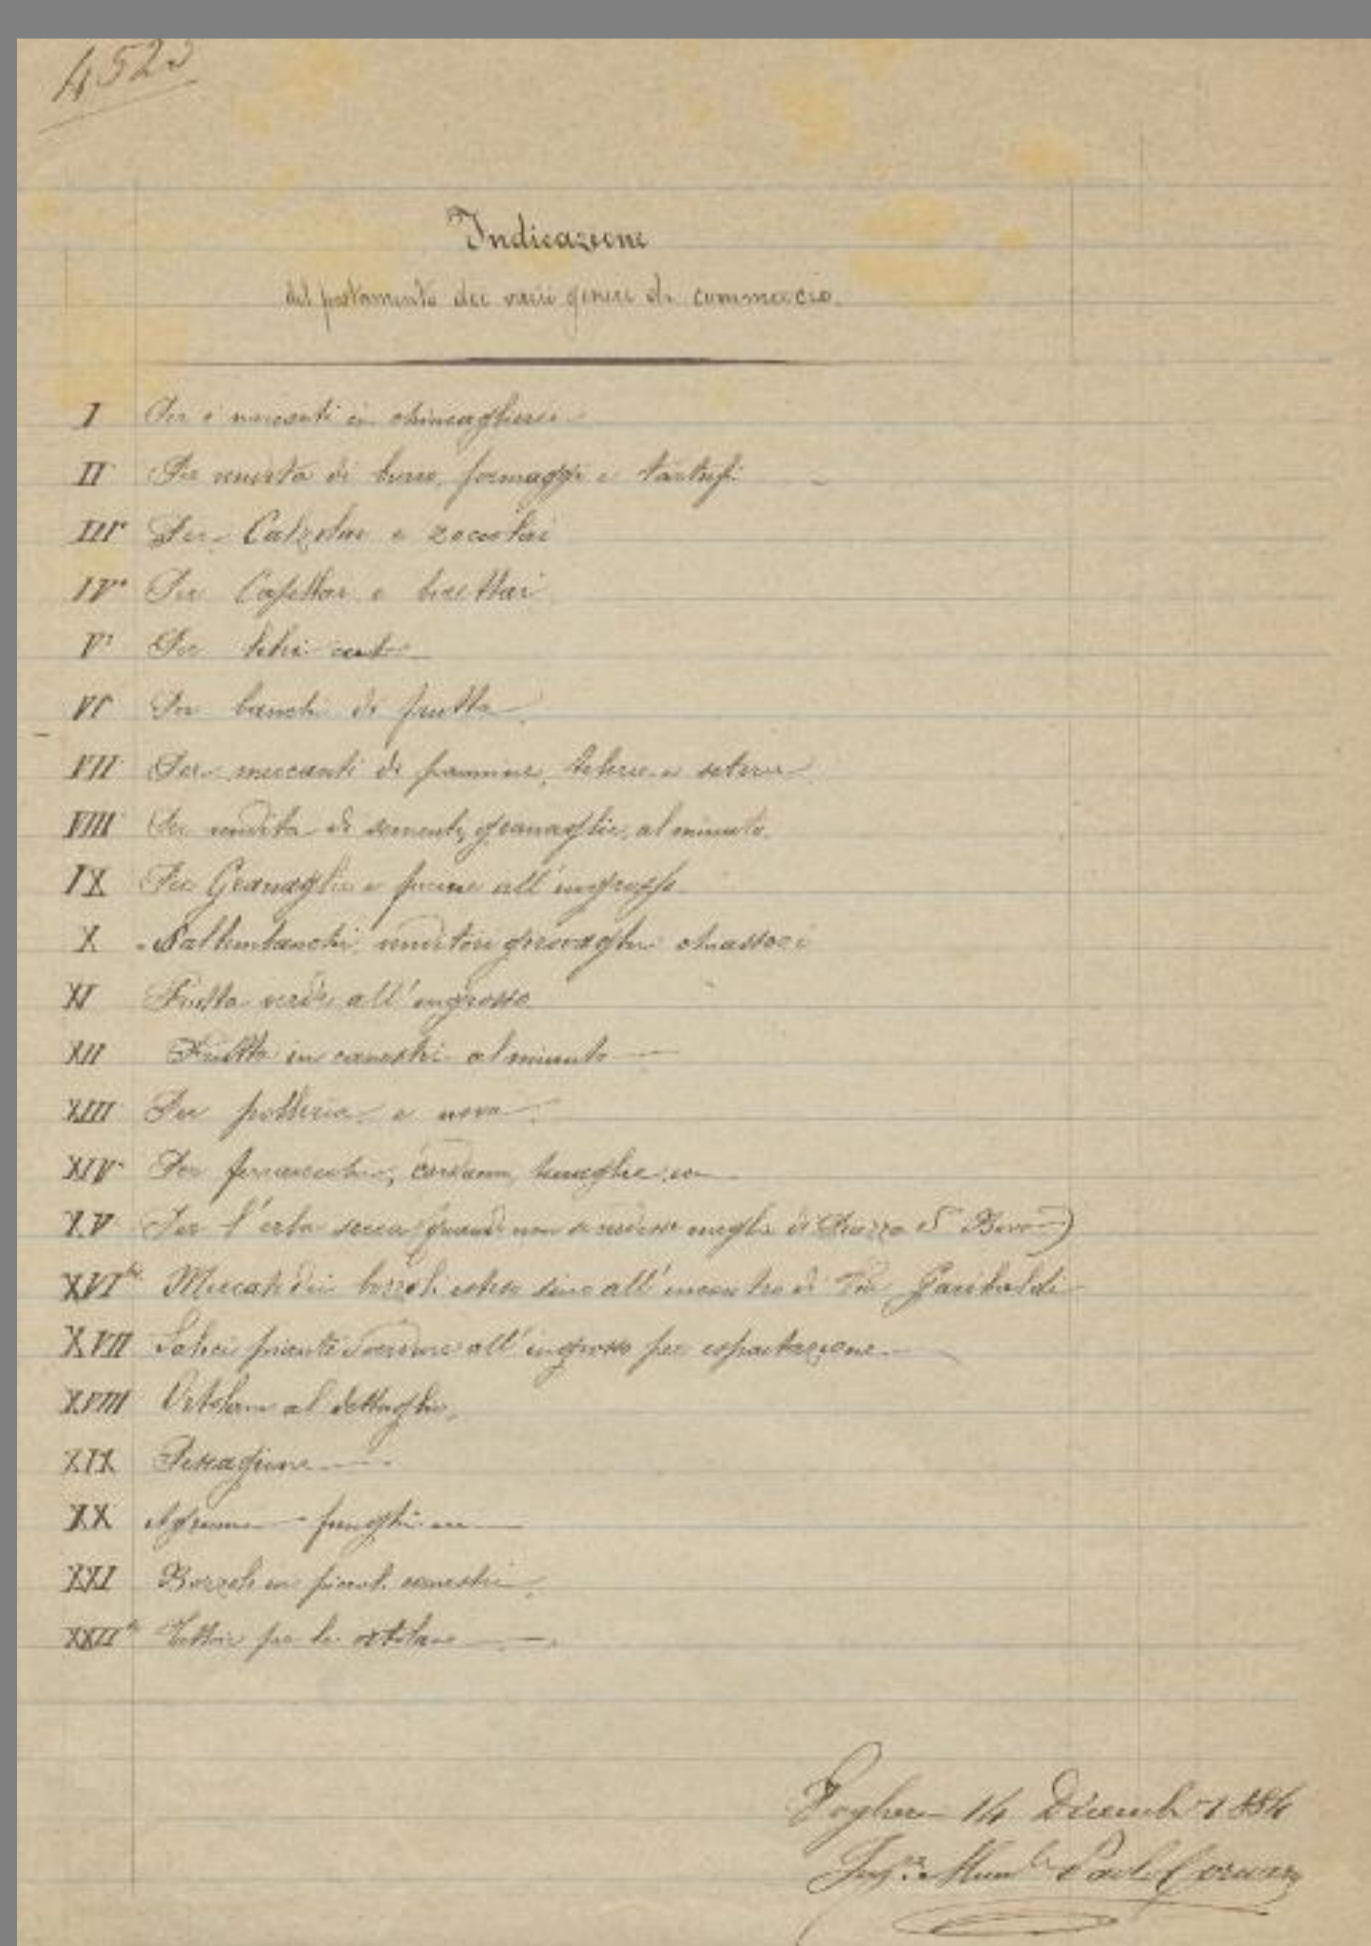 4523
Indicazione
del postamento dei varii generi di commercio.
I Per i mercanti in chincaglierie
II Per vendita di burro, formaggi e tartufi
III° Per Calzolai e zoccolai
IV° Per Capellai e berettai
V° Per
VI Per banchi di frutta
VII Per mercanti di pannine, telerie e seterie
VIII Per vendita di sementi, granaglie, al minuto.
IX Per Granaglie e farine all'ingrosso
X Saltimbanchi, venditori girovaghi chiassosi
XI Frutta verde all'ingrosso
XII Frutta in canestri al minuto
XIII Per polleria e uova
XIV° Per ferravecchi, cordami, tenaglie ecc
XV Per l'erba secca (quando non si credesse meglio di Piazza S. Bovo)
XVI Mercato dei bozzoli esteso sino all'incontro di Via Garibaldi
XVII Salici piante verdure all'ingrosso per esportazione
XVIII Ortolani al dettaglio.
XIX Pescagione
XX Agrumi - funghi ecc
XXI Bozzoli in piccoli canestri
XXII Tettoie per le ortolane
Voghera 14 Dicembre 1884
Ing.re Mun.le Paolo